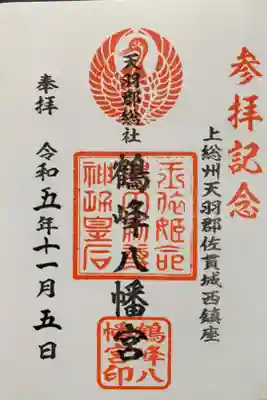 参拝記念
上総州天羽郡佐貫城西鎮座
天羽郡総社
鶴峰八幡宮
玉依姫命
神功皇后
鶴峰八
幡宮印
奉拝
令和五年十一月五日